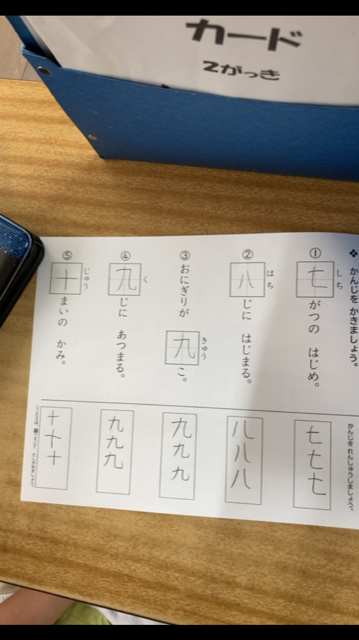 カード
2がっき
❖ かんじを かきましょう。
① 七がつの はじめ。
しち
② 八じに はじまる。
はち
③ おにぎりが 九こ。
きゅう
④ 九じに あつまる。
く
⑤ 十まいの かみ。
じゅう
かんじを れんしゅうしましょう。
七 七 七
八 八 八
九 九 九
九 九 九
十 十 十